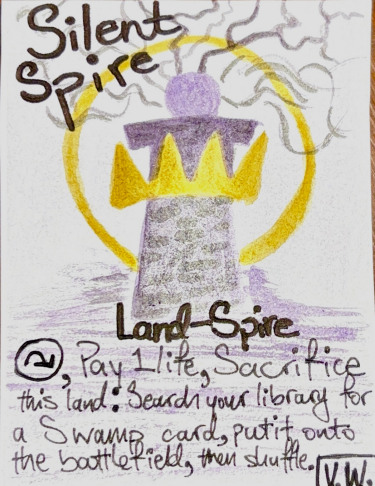 Silent
Spire
Land-Spire
②, Pay 1 life, Sacrifice
this land: Search your library for
a Swamp card, put it onto
the battlefield, then shuffle.
V.W.